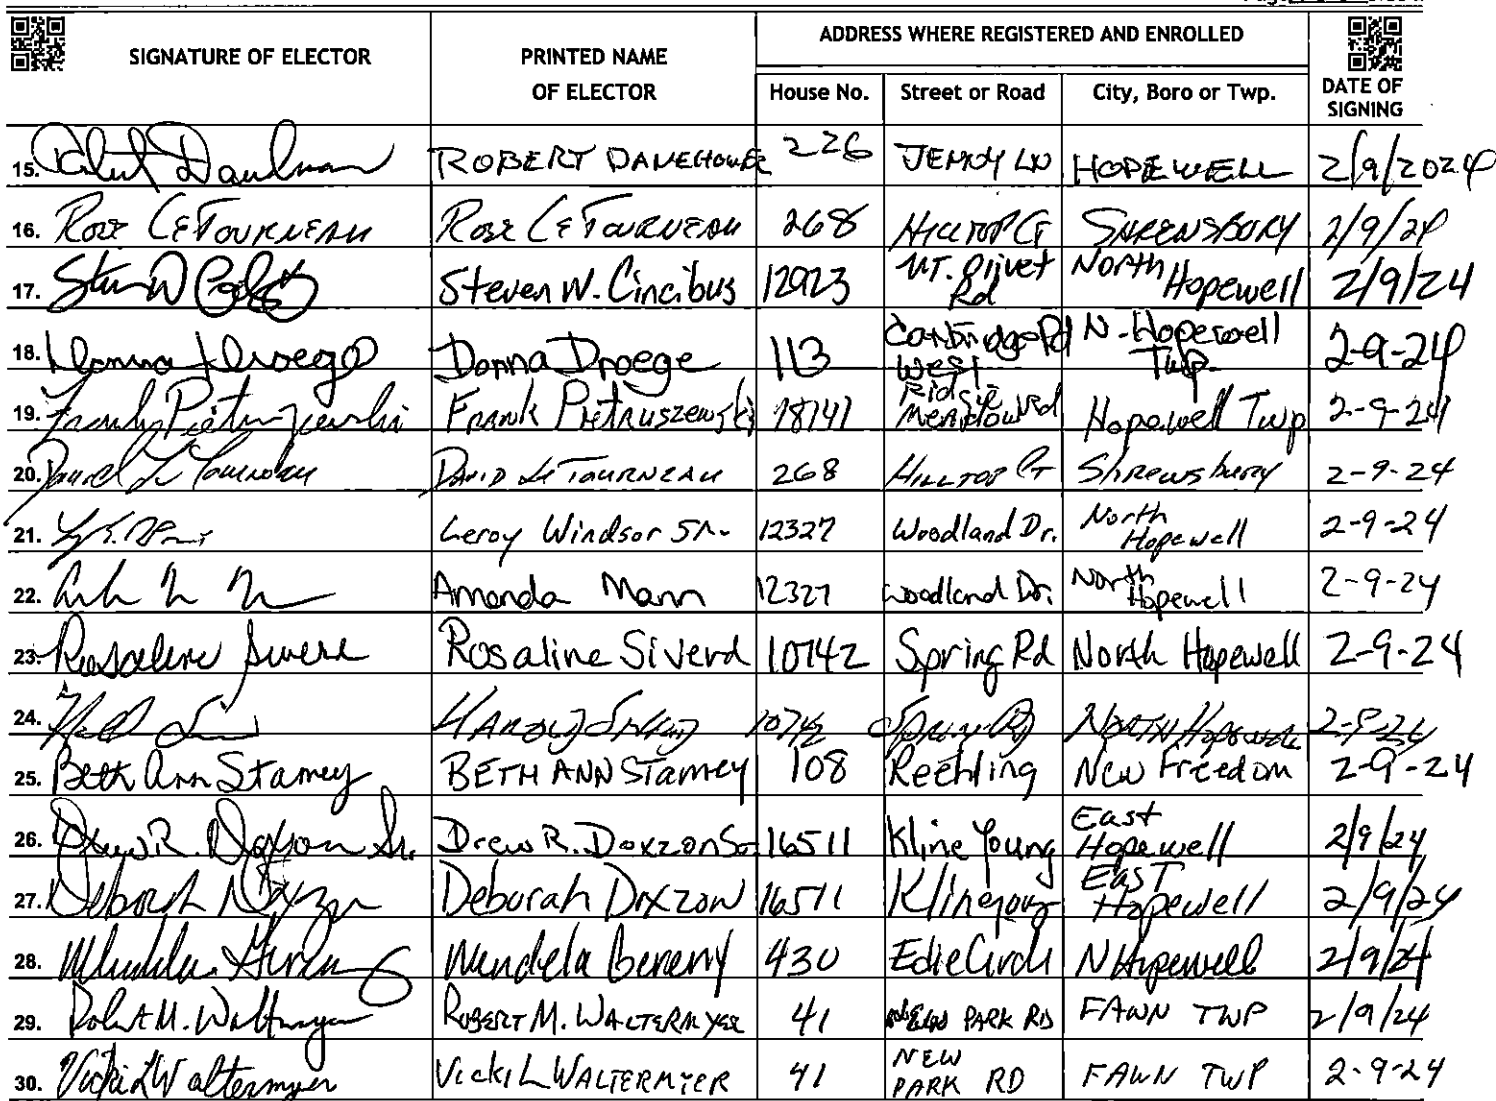 SIGNATURE OF ELECTOR PRINTED NAME OF ELECTOR ADDRESS WHERE REGISTERED AND ENROLLED DATE OF SIGNING
House No. Street or Road City, Boro or Twp.
15. ROBERT 226 JENNY LN HOPEWELL 2/9/2024
16. Rose LeTOURNEAU Rose LeTOURNEAU 268 HILLTOP CT 2/9/24
17. Steven W. Cincibus 12923 MT. Olivet Rd North Hopewell 2/9/24
18. Donna Droege Donna Droege 113 West N. Hopewell Twp. 2-9-24
19. Frank Pietruszewski Frank Pietruszewski 18141 Hopewell Twp 2-9-24
20. David LeTourneau DAVID LeTOURNEAU 268 HILLTOP CT Shrewsbury 2-9-24
21. Leroy Windsor Sr. 12327 Woodland Dr. North Hopewell 2-9-24
22. Amanda Mann 12327 Woodland Dr. North Hopewell 2-9-24
23. Rosaline Rosaline Siverd 10742 Spring Rd North Hopewell 2-9-24
24. 10742 Spring Rd NORTH Hopewell
25. Beth Ann Stamey BETH ANN Stamey 108 Reehling New Freedom 2-9-24
26. Drew R. Doxzon Sr. Drew R. Doxzon Sr 16511 Kline Young East Hopewell 2/9/24
27. Deborah Doxzon Deborah Doxzon 16511 East Hopewell 2/9/24
28. 430 Edie Circle N Hopewell 2/9/24
29. Robert M. Waltermyer ROBERT M. WALTERMYER 41 NEW PARK RD FAWN TWP 2/9/24
30. Vicki L Waltermyer Vicki L WALTERMYER 41 NEW PARK RD FAWN TWP 2-9-24